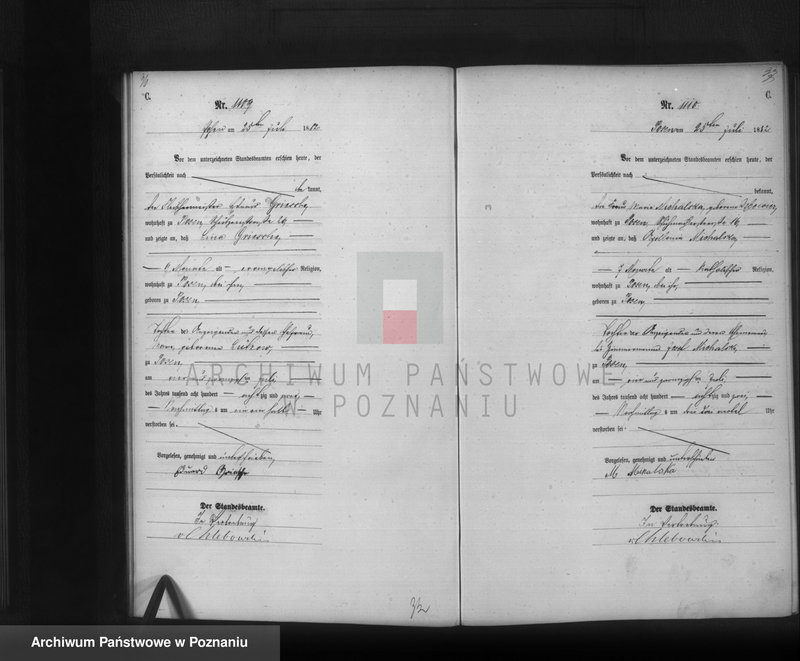 C.
Nr. 1109
am 25ten Juli 1882
Vor dem unterzeichneten Standesbeamten erschien heute, der
Persönlichkeit nach
kannt,
Griesche,
wohnhaft zu Posen, Schützenstraße
und zeigte an, daß Lina Griesche,
Monate alt evangelischer Religion,
wohnhaft zu Posen, bei ihm,
geboren zu Posen
Tochter des Anzeigenden und dessen Ehefrau,
geborene
zu Posen
am vier und zwanzigsten Juli
des Jahres tausend acht hundert achtzig und zwei,
Nachmittag s um ein ein halb Uhr
verstorben sei.
Vorgelesen, genehmigt und unterschrieben,
Eduard Griesche
Der Standesbeamte.
In Vertretung
v. Chlebowski
3/2
C.
Nr. 1110.
Posen am 25ten Juli 1882
Vor dem unterzeichneten Standesbeamten erschien heute, der
Persönlichkeit nach
bekannt,
die Frau Marie Michalska, geborene
wohnhaft zu Posen,
und zeigte an, daß Apollonia Michalska,
7 Monate alt katholischer Religion,
wohnhaft zu Posen, bei ihr,
geboren zu Posen
Tochter der Anzeigenden und deren Ehemannes
des Zimmermann Josef Michalski,
zu Posen,
am vier und zwanzigsten Juli,
des Jahres tausend acht hundert achtzig und zwei,
Nachmittag s um drei drei viertel Uhr
verstorben sei.
Vorgelesen, genehmigt und unterschrieben
M Mikalska
Der Standesbeamte.
In Vertretung
v. Chlebowski
ARCHIWUM PAŃSTWOWE
W POZNANIU
Archiwum Państwowe w Poznaniu